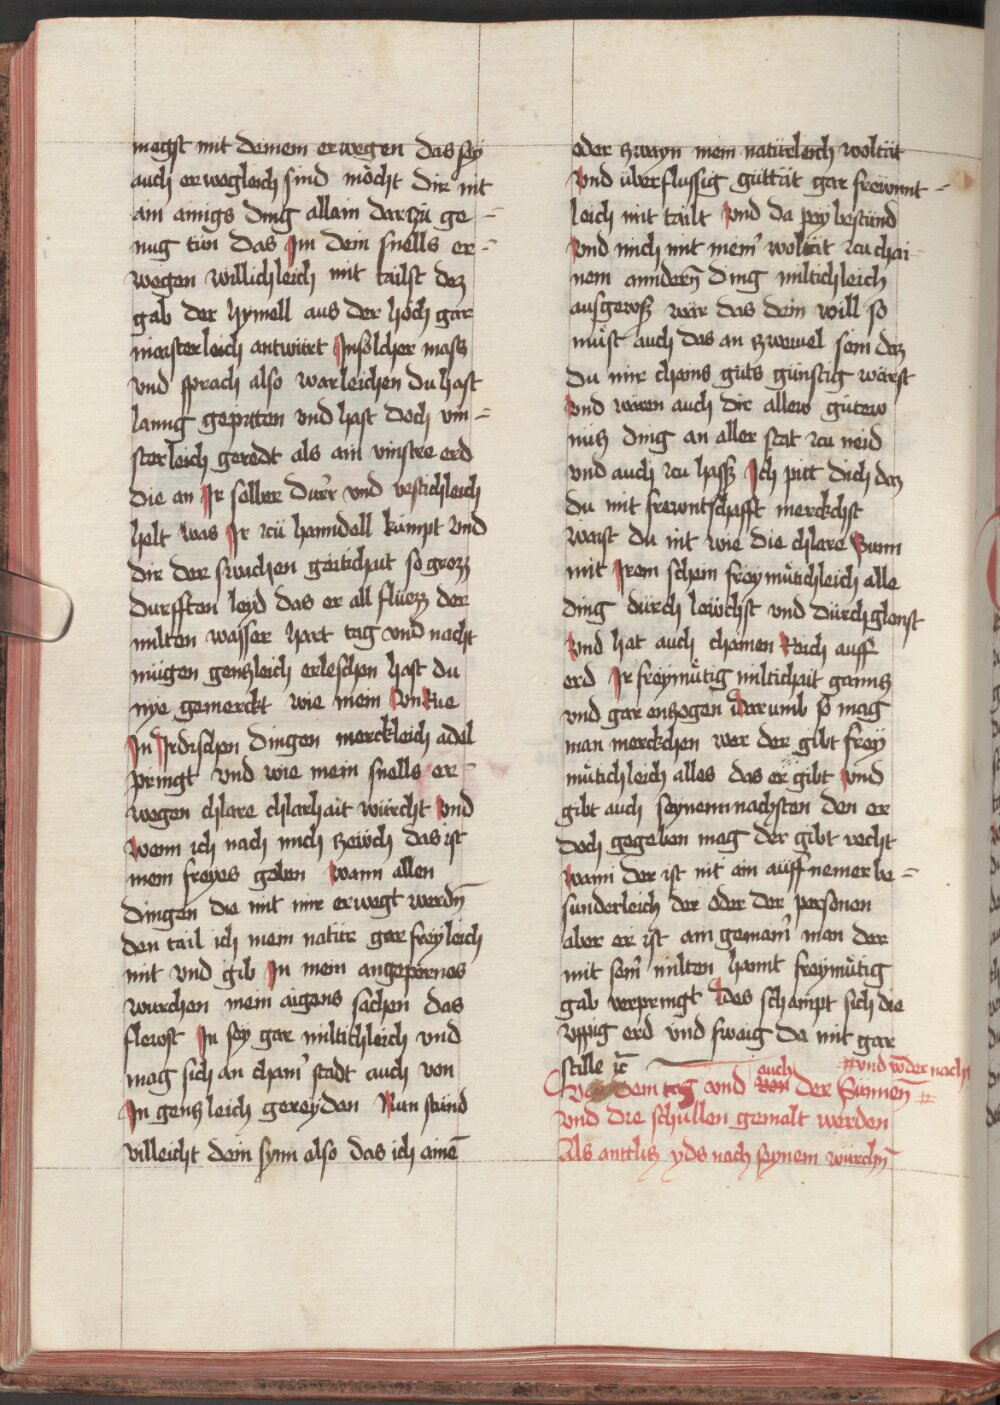 magst mit deinem erwegen das sey
auch erwegleich sind möcht dir nit
ain ainigs ding allain darzü ge-
nug tün das Im dein snells er-
wegen willichleich mit tailst daz
gab der hymell aus der höch gar
maisterleich antwürt In sölcher mass
vnd sprach also warleichen du hast
lanng gepiten vnd hast doch vin-
sterleich geredt als ain vinstre erd
die an Ir selber dürr vnd vestichleich
helt was Ir zü hanndell kumpt Vnd
dir der swachen geitichait so grozz
durfften leyd das er all flüezz der
milten wasser hart tag vnd nacht
mügen gentzleich erleschen hast du
nye gemerckt wie mein Vnrue
In Irdischen dingen merckleich adel
pringt vnd wie mein snells er-
wegen chlare chlarhait würcht Vnd
Wenn ich nach mich zewch das ist
mein freyes geben Wann allen
dingen die mit mir erwegt werdn̄
den tail ich mein natür gar freyleich
mit vnd gib In mein angepornes
wurchen mein aigens sachen das
flewst In sey gar miltichleich vnd
mag sich an chain̄ stadt auch von
In gentzleich gereyden Nun stünd
villeicht dein synn also das ich ainē
oder zwayn mein natürleich woltät
Vnd überflussig güttät gar frewnt-
leich mit tailt Vnd da pey bestünd
Vnd mich mit mein̄ woltät zcu chai-
nem anndern̄ ding miltichleich
ausgewss wär das dein will so
müst auch das an zweiuel sein daz
du mir chains güts günstig wärst
Vnd wären auch dir allew gütew
nütz ding an aller stat zcu neid
vnd auch zcu hass Ich pitt dich daz
du mit frewntschafft merckchst
Waist du nit wie die chlare Sunn
mit Irem schein freymütichleich alle
ding dürch lewchst vnd dürchglenst
Vnd hat auch chainen Reich auff
erd Ir freymütig miltichait ganntz
vnd gar entzogen Darumb so mag
man merckchen wer der gibt frey
mütichleich alles das er gibt vnd
gibt auch seynem nachsten den er
doch gegeben mag der gibt recht
Wann der ist nit ain auffnemer be-
sunderleich der oder der personen
aber er ist ain gemain̄ man der
mit sein̄ milten hannt freymütig
gab verpringt Des schampt sich die
vppig erd vnd sweig da mit gar
stille ꝛc̄
auch # vnd wider nacht
Von dem tag vnd von der Sünnen̄ #
vnd die schullen gemalt werden
Als anttlitz yds nach seynem würchn̄